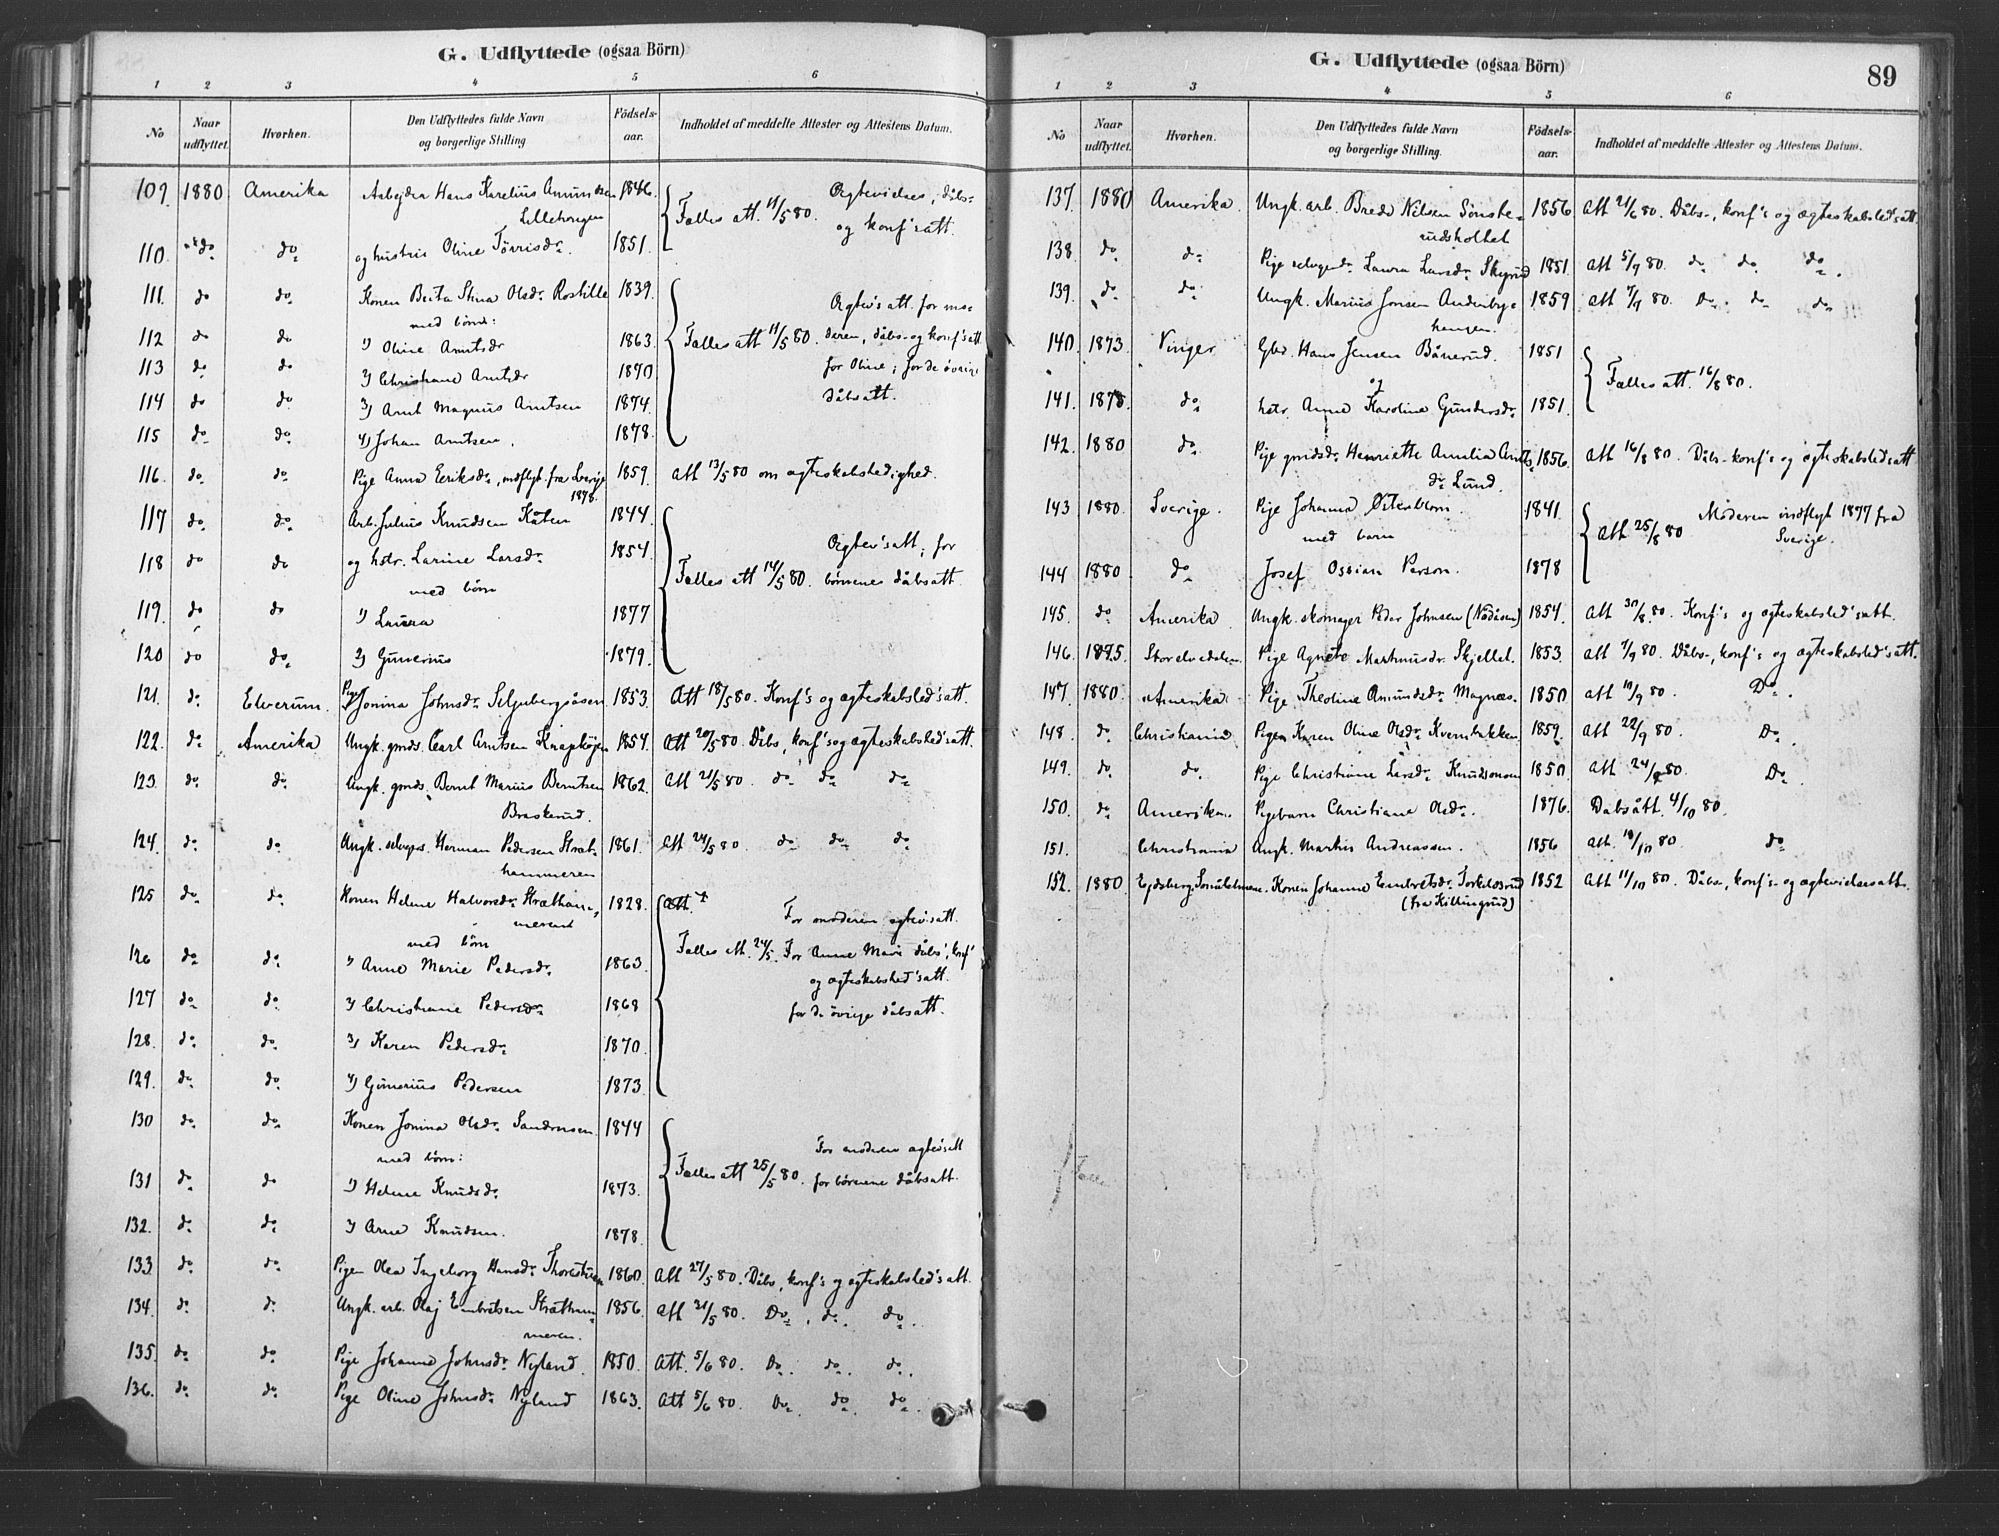 G. Udflyttede (ogsaa Börn)
1 2 3 4 5 6
No Naar udflyttet. Hvorhen. Den Udflyttedes fulde Navn og borgerlige Stilling Födsels-aar. Indholdet af meddelte Attester og Attestens Datum.
109. 1880 Amerika Arbejder Hans Karelius Amundsen 1846. Fælles att. 11/5 80. Ægtevielses, dåbs-
og konf's att.
110. do do og hustru Oline Tørrisdr. 1851.
111. do do Konen Berta Stina Olsdr. 1839. Ægtev's att. for mo-
med børn:
112 do do 1) Oline Arntsdr 1863. Fælles att 11/5 80. deren, dåbs- og konf's att
113 do do 2) Christiane Arntsdr 1870 for Oline; for de øvrige
114 do do 3) Arnt Magnus Arntsen 1874. dåbsatt.
115 do do 4) Johan Arntsen. 1878.
116. do. do. Pige Anna Eriksdr., indflyt. fra Sverige 1859. Att 13/5 80 om ægteskabsledighed.
1878.
117 do. do. Arb. Julius Knudsen Kåten 1844
118 do do og hstr. Larine Larsdr. 1854. Fælles att 14/5 80. Ægtev's att; for
med børn børnenes dåbsatt.
119. do do 1) Laura 1877
120 do do. 2) Gunerius 1879.
121. do. Elverum. Pige Jonina Johnsdr. Seljubergsåsen 1853. Att 18/5 80. Konf's og ægteskabsled's att.
122. do. Amerika Ungk. gmds. Carl Arntsen 1854. Att 20/5 80. Dåbs, konf's og ægteskabsled's att.
123. do. do. Ungk. gmds. Bernt Marius Berntsen 1862. Att 21/5 80 do do do
Braskerud.
124. do. do. Ungk. selvejers. Herman Pedersen Stræt- 1861. Att 24/5 80 do do do
hammeren
125 do. do. Konen Helene Halvorsdr. Strætham- 1828. Att.
meren For moderen ægtev's att.
med børn
126 do. do. 1) Anne Marie Pedersdr. 1863. Fælles att. 24/5. For Anne Marie dåbs', konf'
og ægteskabsled's att.
127 do. do. 2) Christiane Pedersdr. 1868 for de øvrige dåbsatt.
128. do. do. 3) Karen Pedersdr. 1870.
129. do. do. 4) Gunerius Pedersen 1873.
130 do. do. Konen Jonina Olsdr. 1844 For moderen ægtev's att
med børn:
131 do. do 1) Helene Knudsdr. 1873. Fælles att 25/5 80. for børnene dåbsatt.
132. do. do. 2) Arne Knudsen. 1878.
133. do. do. Pigen Olea Ingeborg Hansdr. 1860. Att 27/5 80. Dåbs, konf's og ægteskabsled's att.
134. do. do. Ungk. arb. Olaj Embretsen Stretham- 1856. Att 21/5 80 Do. do. do.
meren.
135. do. do. Pige Johanne Johnsdr. Nyland. 1850. Att. 5/6 80. Do. do. do.
136. do. do. Pige Oline Johnsdr. Nyland 1863. Att 5/6 80. Do. do. do.
G. Udflyttede (ogsaa Börn) 89
1 2 3 4 5 6
No Naar udflyttet. Hvorhen. Den Udflyttedes fulde Navn og borgerlige Stilling. Födsels-aar. Indholdet af meddelte Attester og Attestens Datum.
137. 1880 Amerika. Ungk. arb. Brede Nilsen Sønste- 1856. Att 21/6 80. Dåbs-, konf's og ægteskabsled's att.
rudsholtet
138. do. do. Pige selvejerdr. Laura Larsdr. Skyrud 1851. Att 5/7 80. do do do.
139. do. do. Ungk. Marius Jonsen 1859 Att 80. Do. do do
140. 1873. Vinger Gbr. Hans Jensen Bånerud. 1851
og Fælles att. 16/8 80.
141. 1878. do. hstr. Anne Karoline Gundersdr. 1851.
142. 1880 do. Pige gmdsdr. Henriette Amalia Arnts- 1856. Att 16/8 80. Dåbs- konf's- og ægteskabsled's att
dr. Lund.
143 1880. Sverige. Pige Johanna Østerblom. 1841. Att 25/8 80 Moderen indflyt 1877 fra
med barn Sverige.
144 1880. do. Josef Ossian Person. 1878
145. do. Amerika. Ungk. skomager Peder Johnsen 1854. Att 30/8. 80. Konf's og ægteskabsled's att.
146. 1875. Storelvedalen. Pige Agnete Martinusdr. Skjellet. 1853. Att 7/9 80. Dåbs-, konf's og ægteskabsled's att.
147. 1880. Amerika. Pige Theoline Amundsdr. Magnæs. 1850 Att 10/9 80. Do.
148. do. Christiania Pigen Karen Oline Olsdr. Kvernbakken 1859. Att 22/9 80. Do.
149. do. do. Pige Christiane Larsdr. 1850. Att 24/9 80. Do.
150. do. Amerika. Pigebarn Christiane Olsdr. 1876. Dåbsatt. 4/10 80.
151. Christiania Ungk. Martin Andreassen. 1856 Att. 10/10 80. do
152. 1880. Ejdsberg, Smålenene. Konen Johanne Embretsdr. Torkildsrud 1852 Att 11/10 80. Dåbs-, konf's- og ægtevielsesatt.
(fra Killingrud)